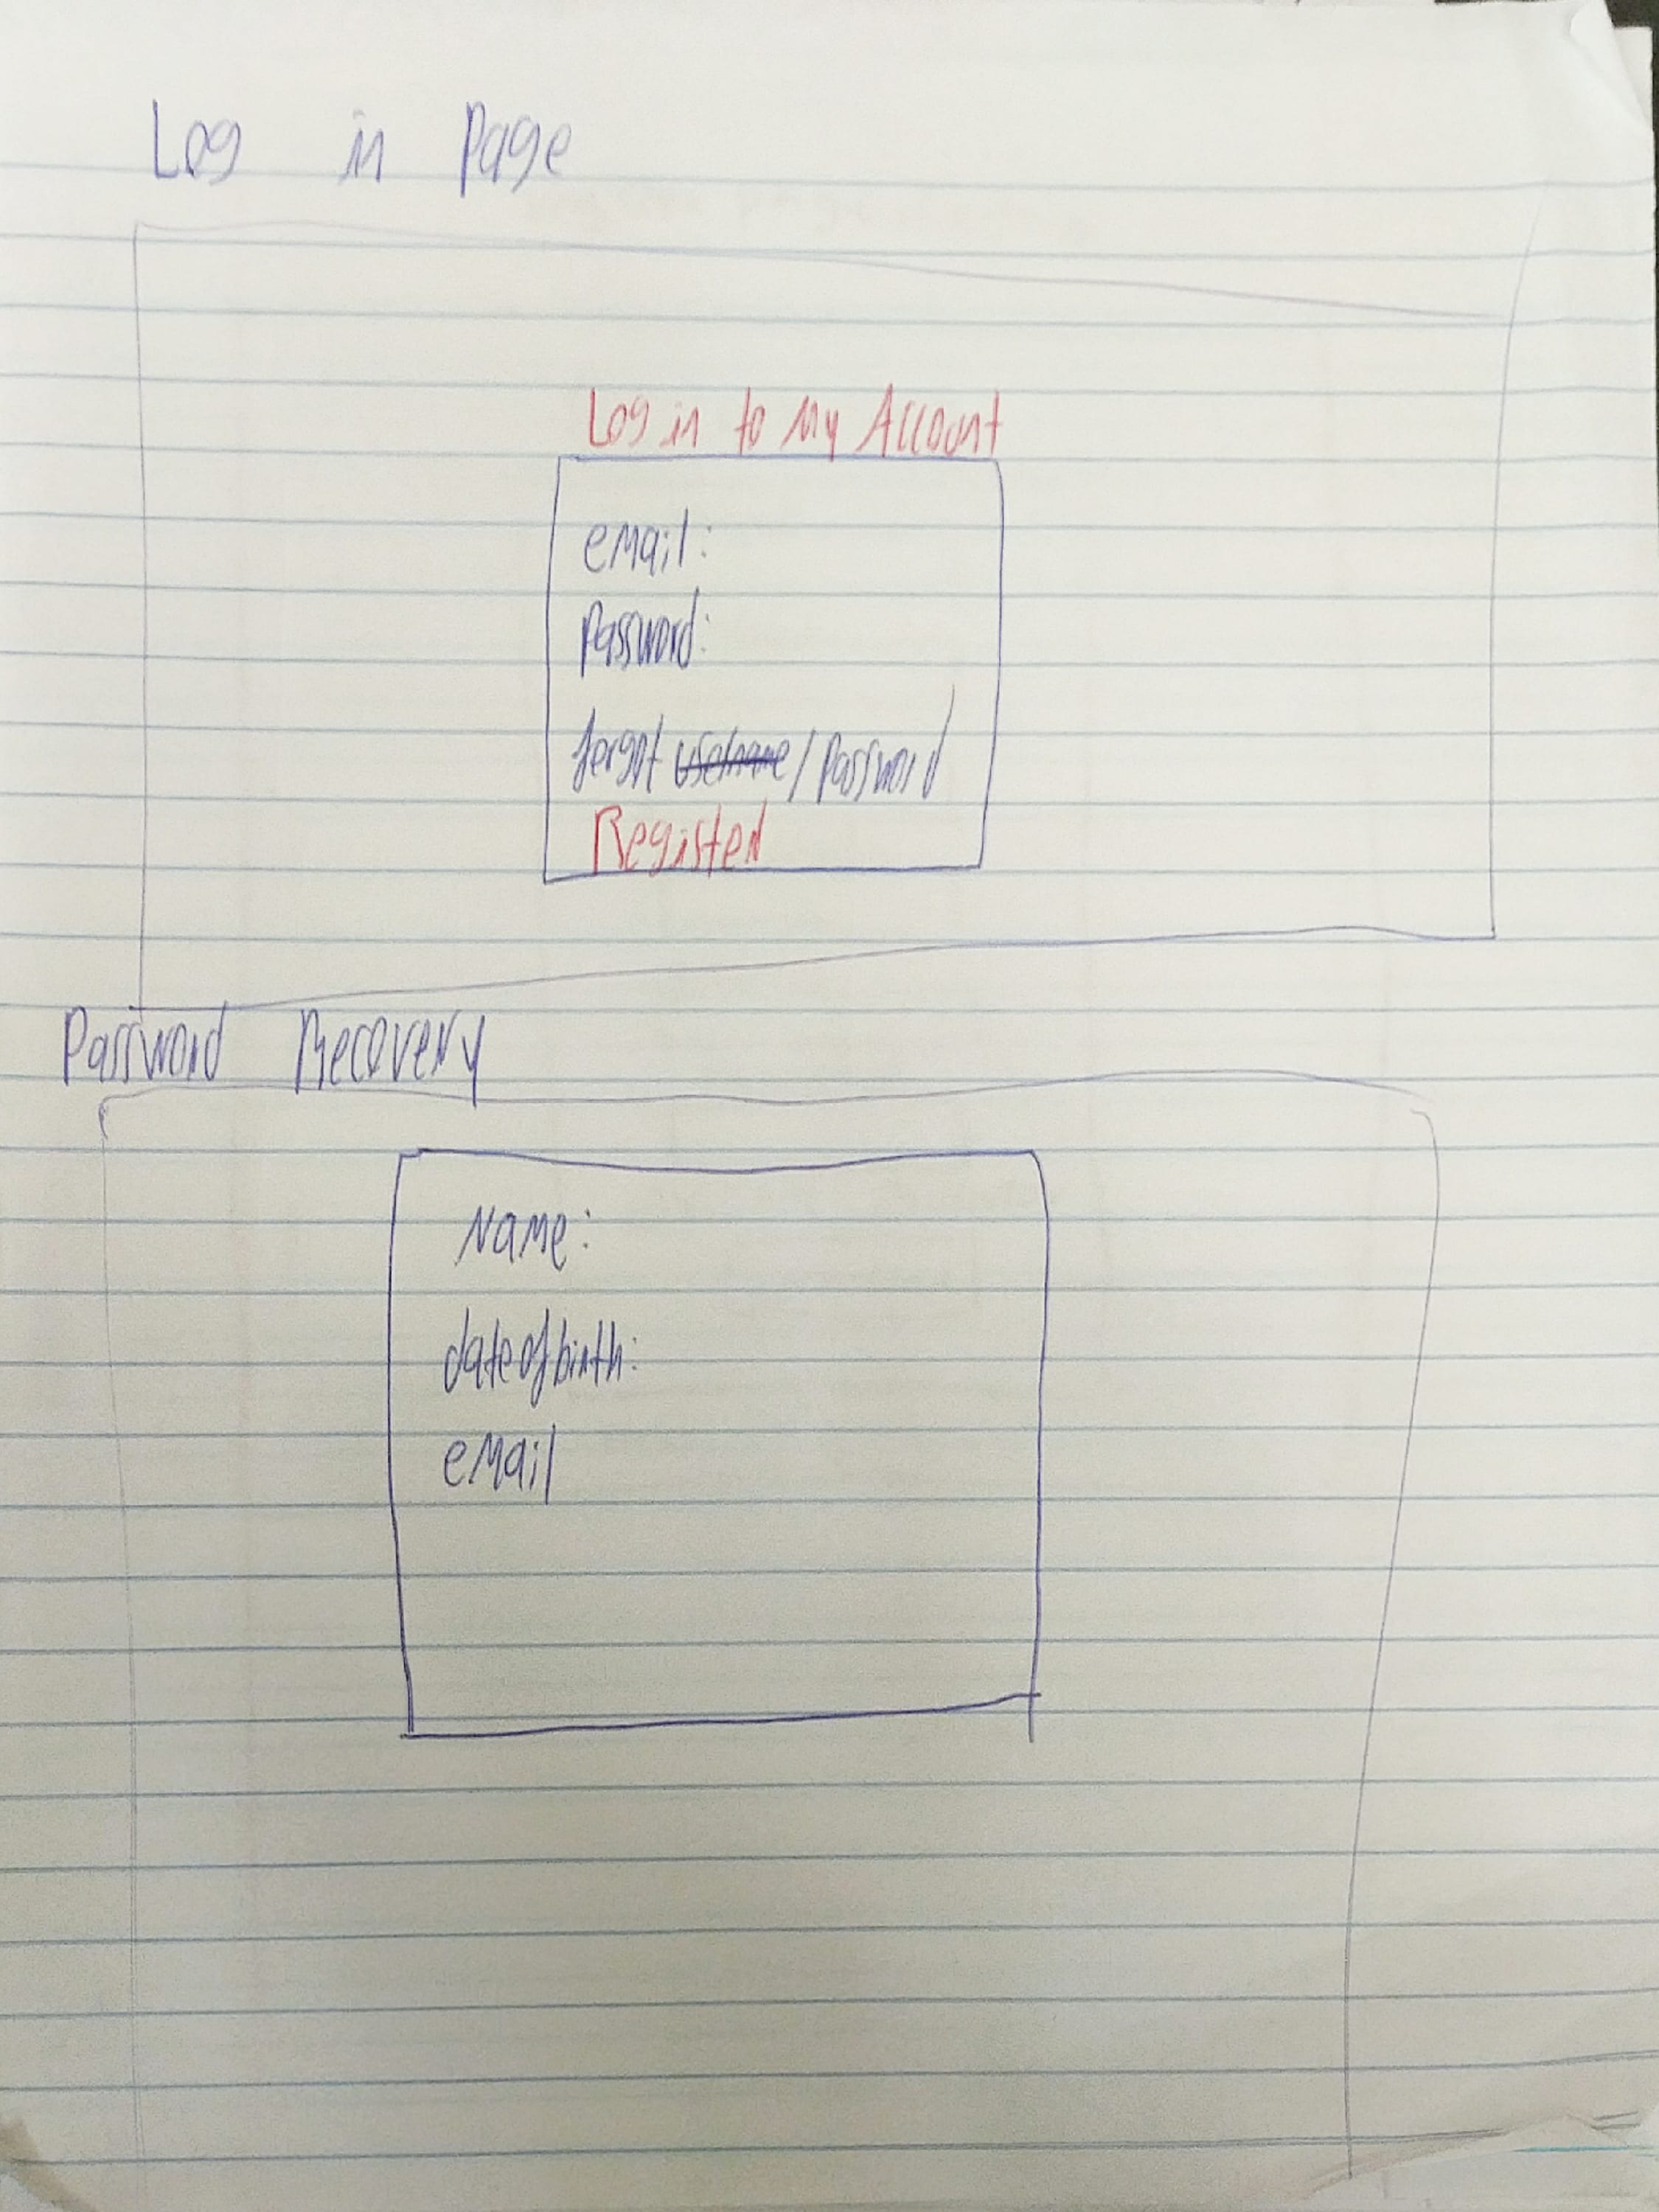 Log in Page
Log in to My Account
email:
Password:
forgot username/Password
Register
Password Recovery
Name:
date of birth:
email